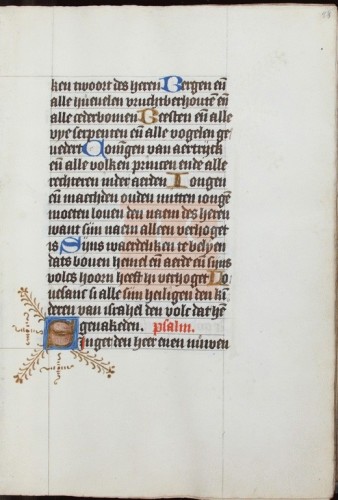 ken twoort des heren Bergen en̄
alle huevelen vruchtverhoute en̄
alle cederbomen Beesten en̄ alle
vye serpenten en̄ alle vogelen ge
vedert Coningen van aertryck
en̄ alle volken princen ende alle
rechteren inder aerden Iongen
en̄ maechden ouden mitten ionge
moeten loven den naem des heren
want sijn naem alleen verhoget
is Sijns waerdeliken te belyen
dats boven hemel en̄ aerde en̄ sijns
volcs hoorn heeft hi verhoget Lo
vesanc si alle sijn heiligen den ki
deren van israhel den volc dat hē
genakeden. psalm.
Singet den heer enen nuwen